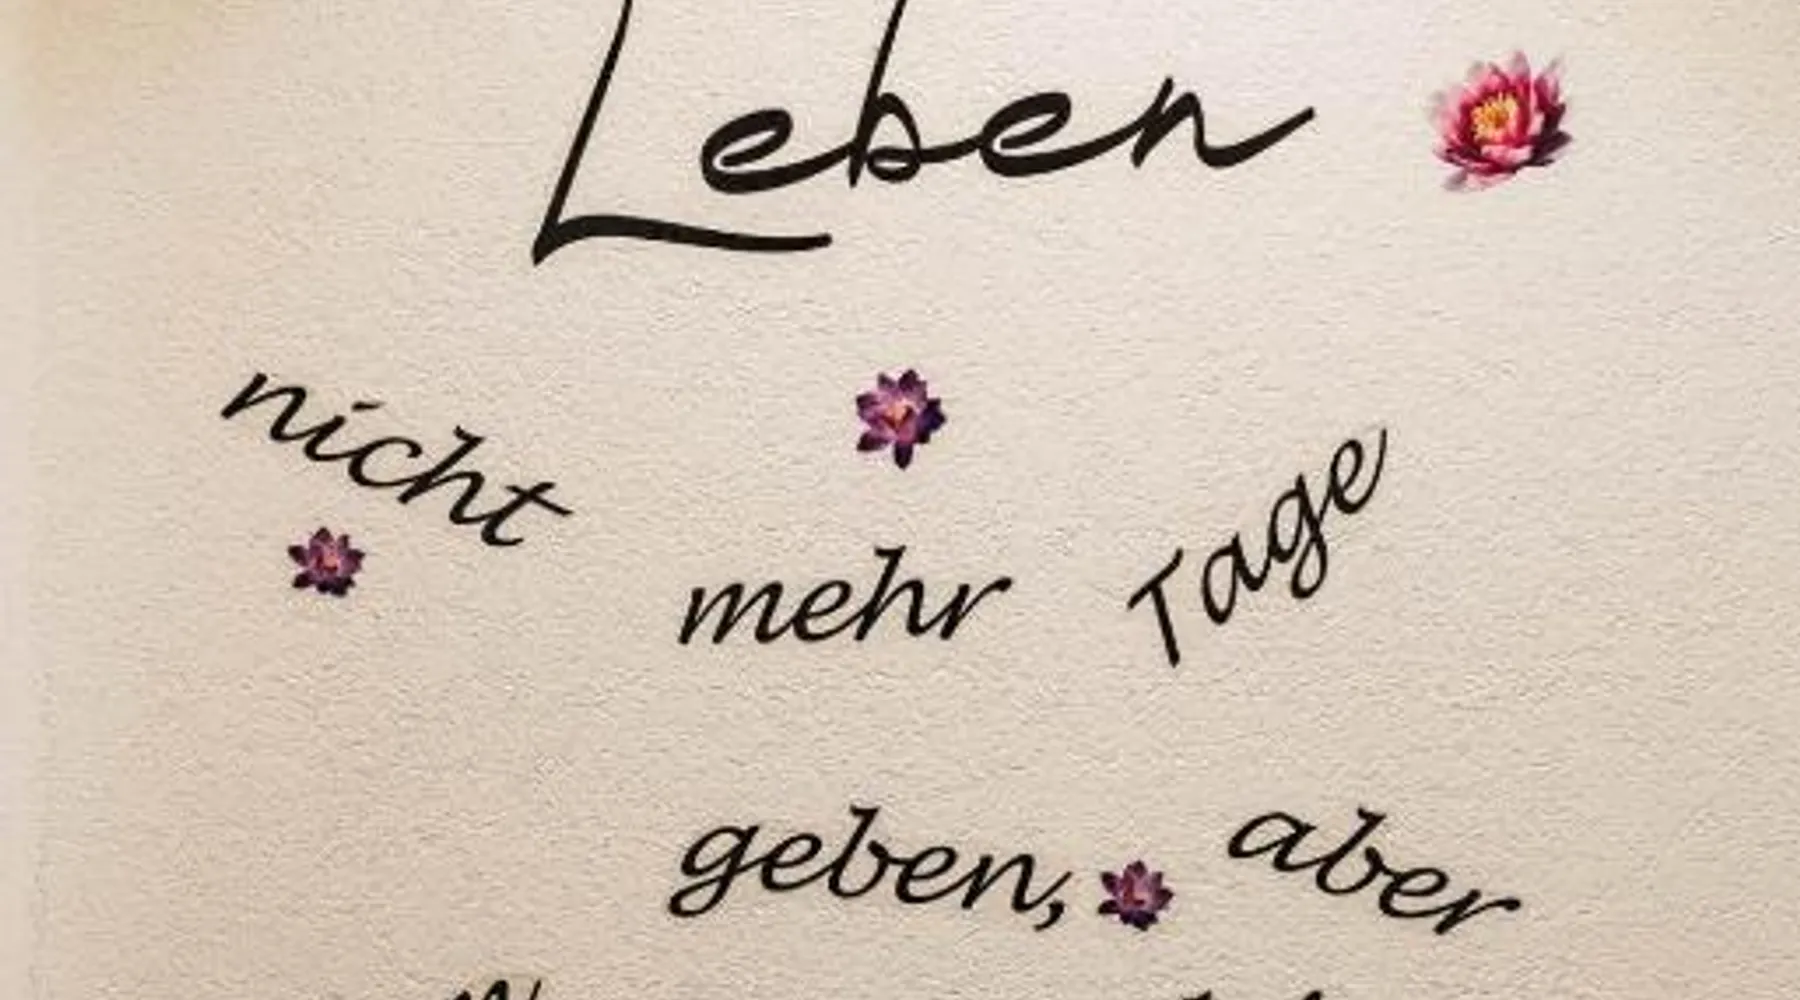 Leben
nicht mehr Tage
geben, aber